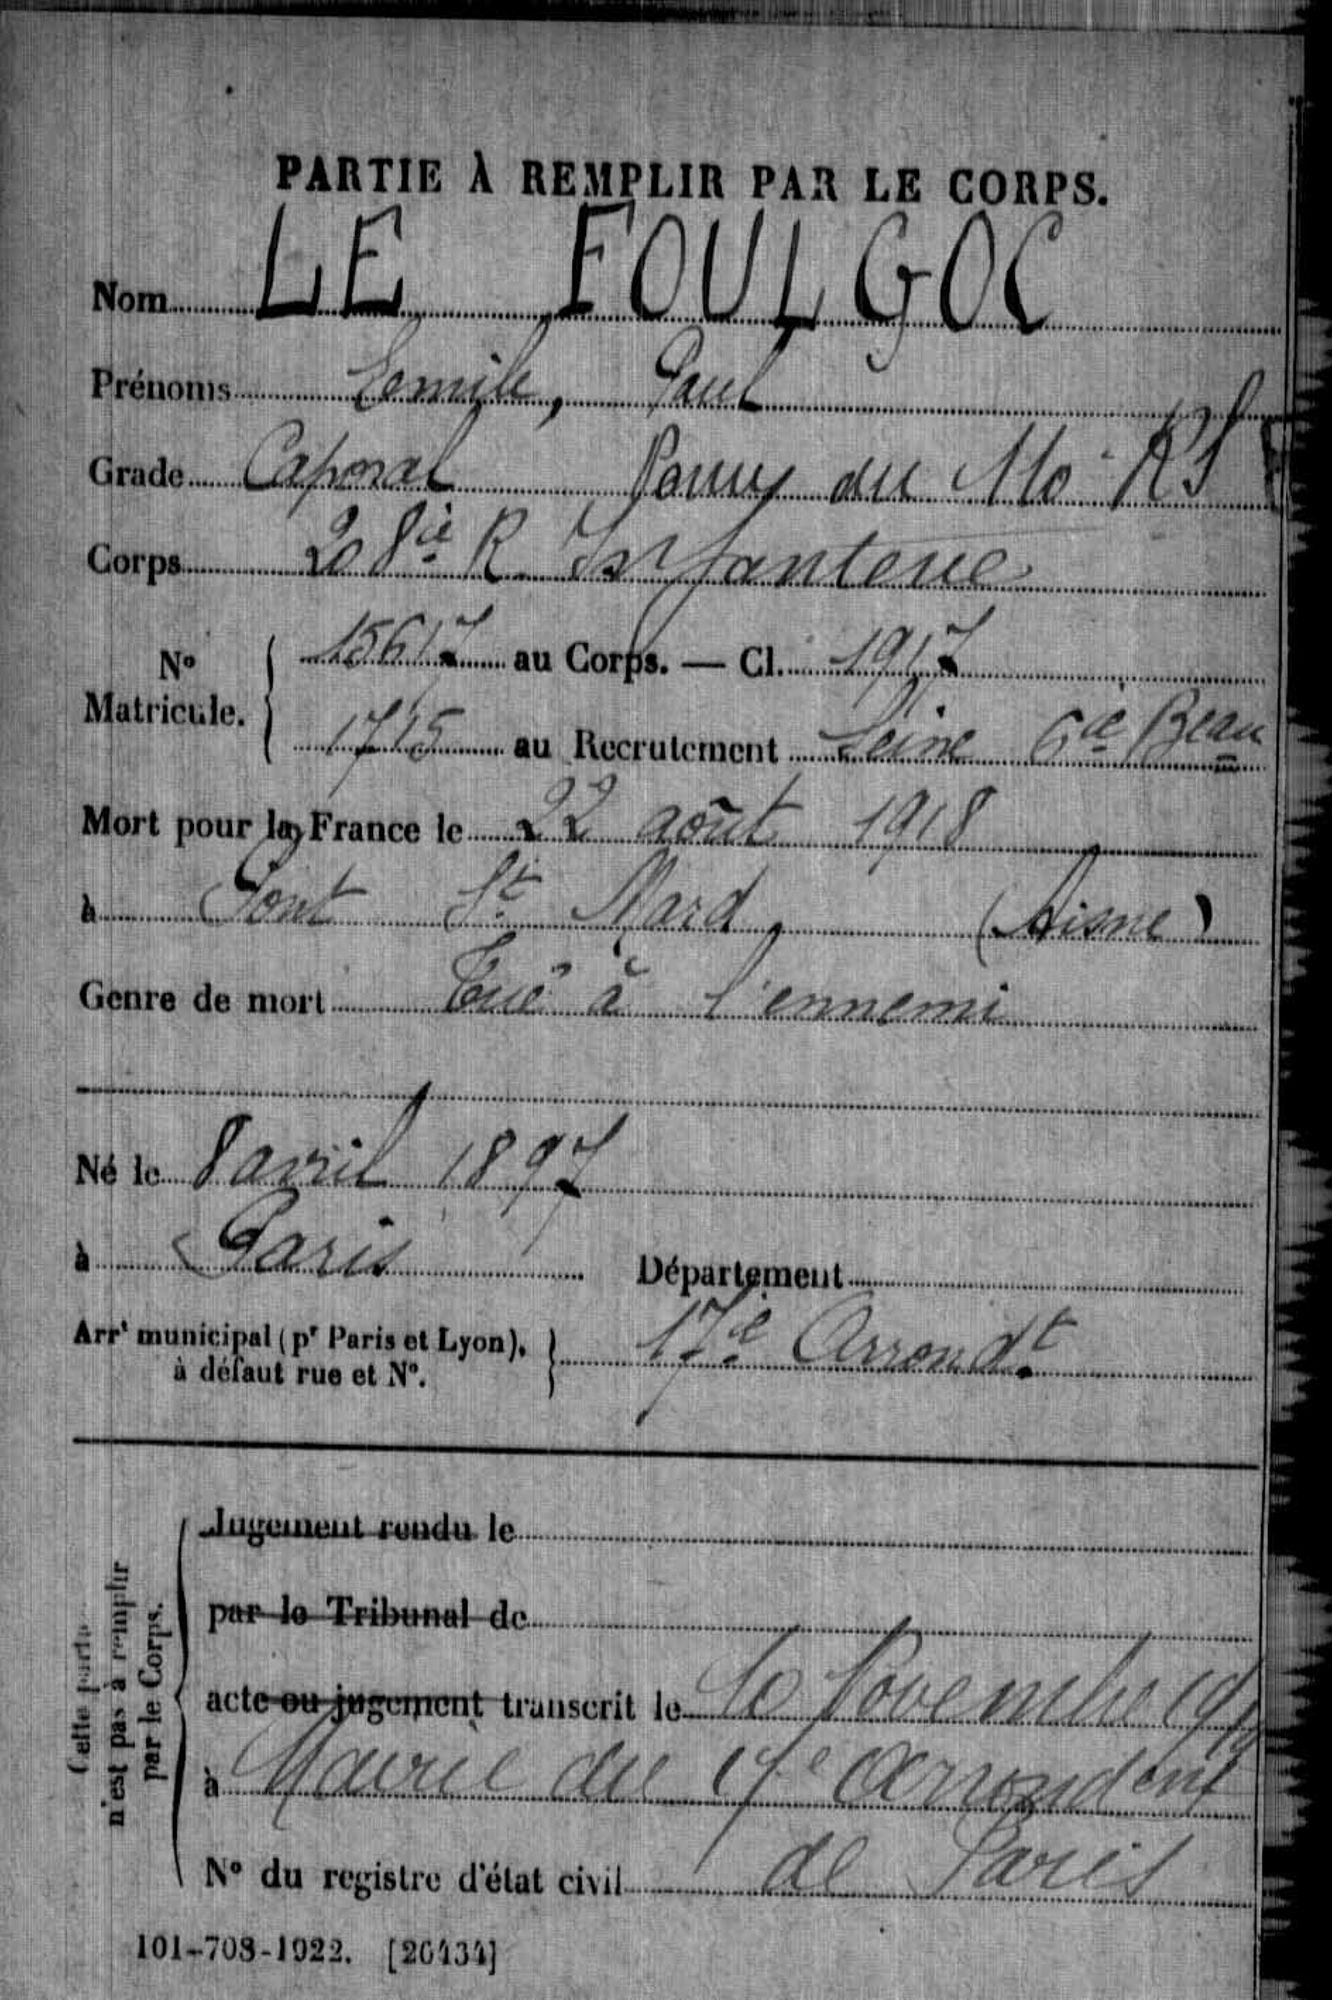 PARTIE À REMPLIR PAR LE CORPS.
Nom LE FOULGOC
Prénoms Emile, Paul
Grade Caporal
Corps 208ie R. Infanterie
N° Matricule. { 15617 au Corps. — Cl. 1917
1715 au Recrutement Seine 6ie Beau
Mort pour la France le 22 août 1918
à Pont St Mard (Aisne)
Genre de mort Tué à l'ennemi
Né le 8 avril 1897
à Paris Département
Arrt municipal (pr Paris et Lyon), à défaut rue et N°. } 17e Arrondt
Cette partie n'est pas à remplir par le Corps.
Jugement rendu le
par le Tribunal de
acte ou jugement transcrit le 10 Novembre
à Mairie du 17e Arrondent
de Paris
N° du registre d'état civil
101-708-1922. [26434]